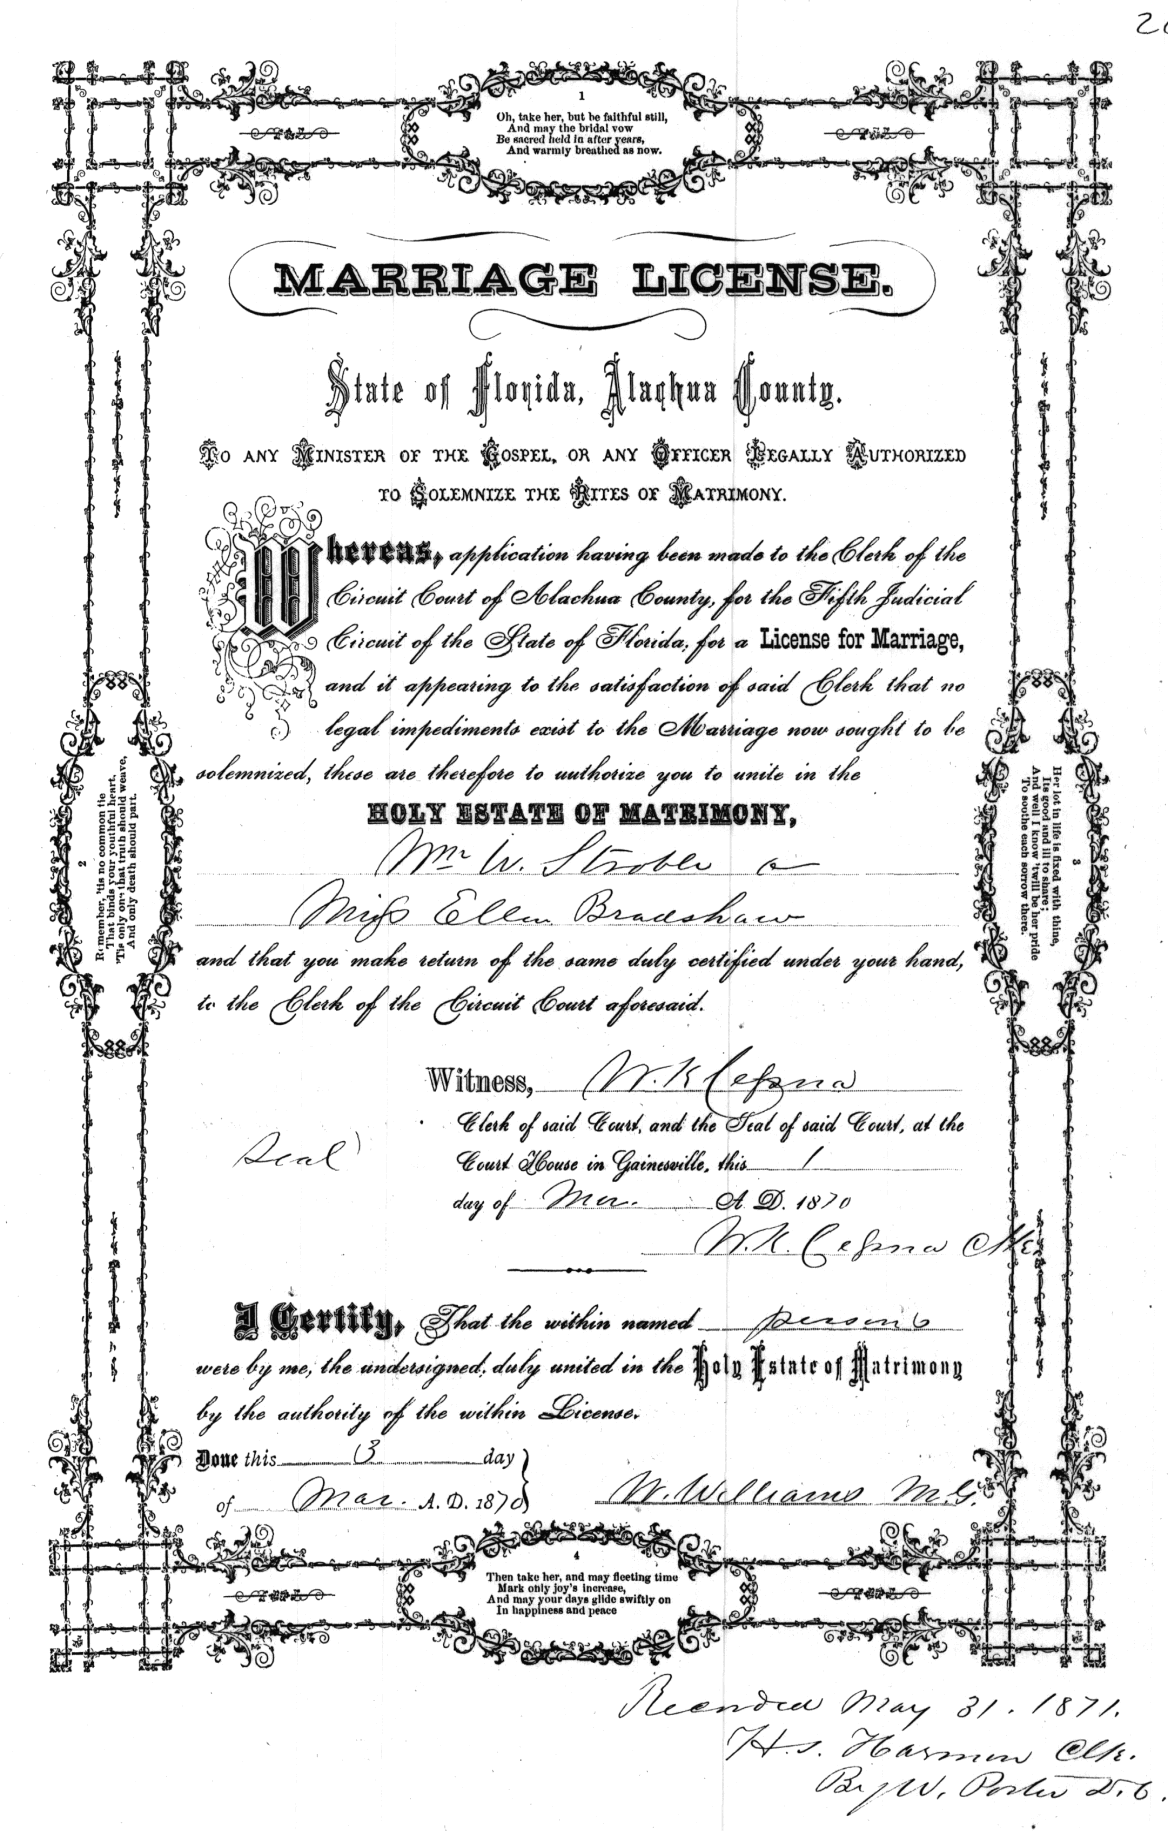 1
Oh, take her, but be faithful still,
And may the bridal vow
Be sacred held in after years,
And warmly breathed as now.
MARRIAGE LICENSE.
State of Florida, Alachua County.
TO ANY MINISTER OF THE GOSPEL, OR ANY OFFICER LEGALLY AUTHORIZED
TO SOLEMNIZE THE RITES OF MATRIMONY.
Whereas, application having been made to the Clerk of the
Circuit Court of Alachua County, for the Fifth Judicial
Circuit of the State of Florida, for a License for Marriage,
and it appearing to the satisfaction of said Clerk that no
legal impediments exist to the Marriage now sought to be
solemnized, these are therefore to authorize you to unite in the
HOLY ESTATE OF MATRIMONY,
Mr W. Stroble
Miss Ellen Bradshaw
and that you make return of the same duly certified under your hand,
to the Clerk of the Circuit Court aforesaid.
2
Remember, 'tis no common tie
That binds your youthful heart,
'Tis only one that truth should weave,
And only death should part.
3
Her lot in life is fixed with thine,
Its good and ill to share;
And well I know 'twill be her pride
To soothe each sorrow there.
Witness, W. K Cessna
Clerk of said Court, and the Seal of said Court, at the
Seal
Court House in Gainesville, this 1
day of Mar. A. D. 1870
W. K. Cessna Clk
I Certify, That the within named persons
were by me, the undersigned, duly united in the Holy Estate of Matrimony
by the authority of the within License.
Done this 3 day
of Mar. A. D. 1870 W. Williams M.G.
4
Then take her, and may fleeting time
Mark only joy's increase,
And may your days glide swiftly on
In happiness and peace
Recorded May 31. 1871.
H. S. Harmon Clk.
By W. Porter D. C.